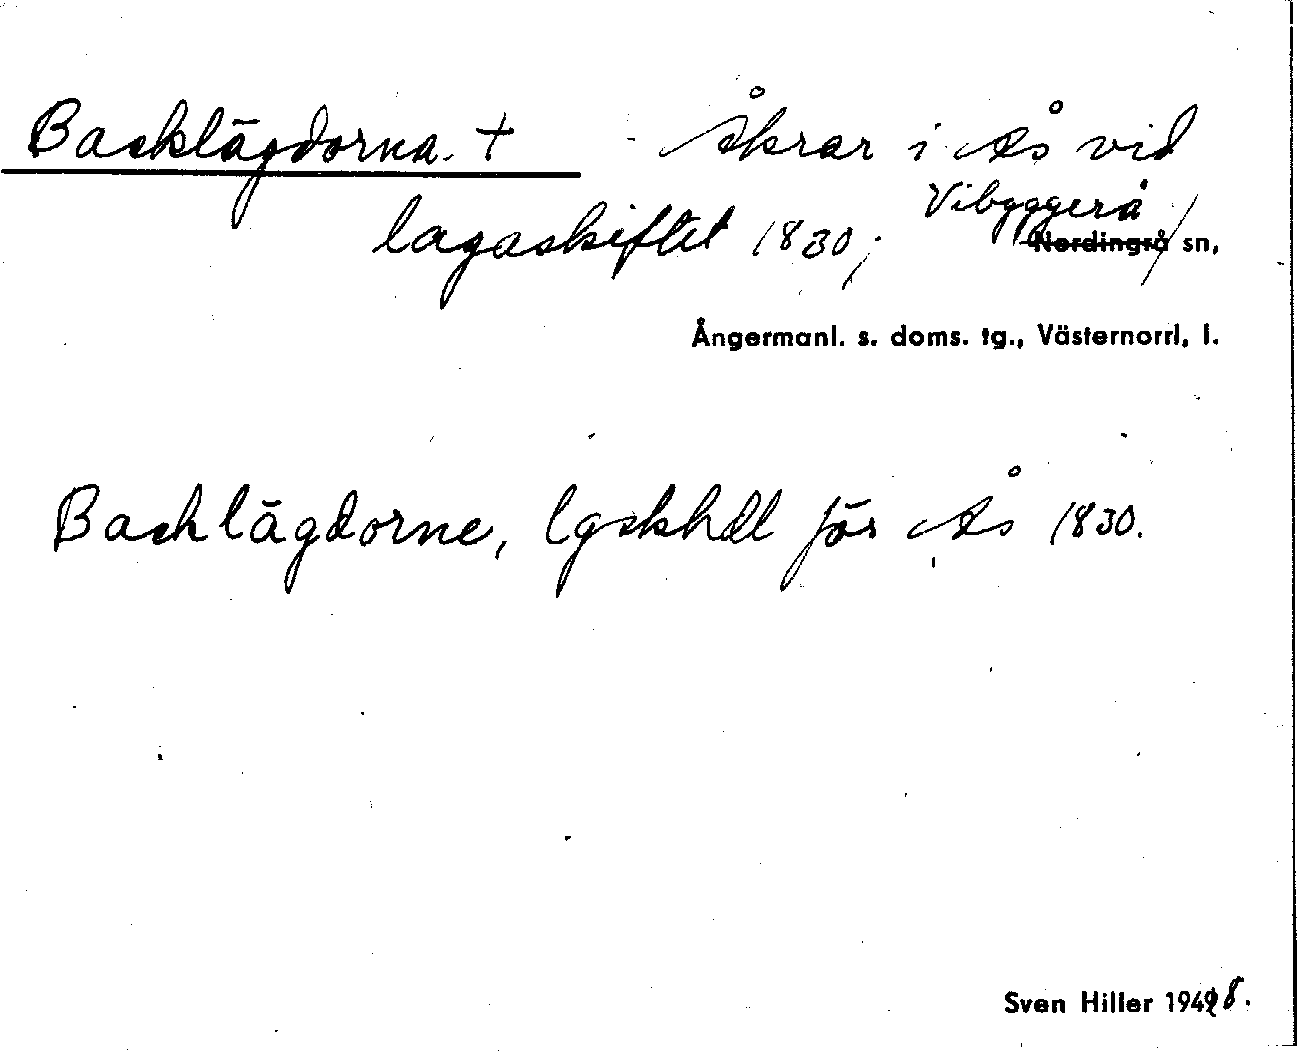 Backlägdorna. +   Åkrar i Ås vid
lagaskiftet 1830; Vibyggerå sn,
Nordingrå
Ångermanl. s. doms. tg., Västernorrl. l.
Backlägdorne, lgskhdl för Ås 1830.
Sven Hiller 1948.